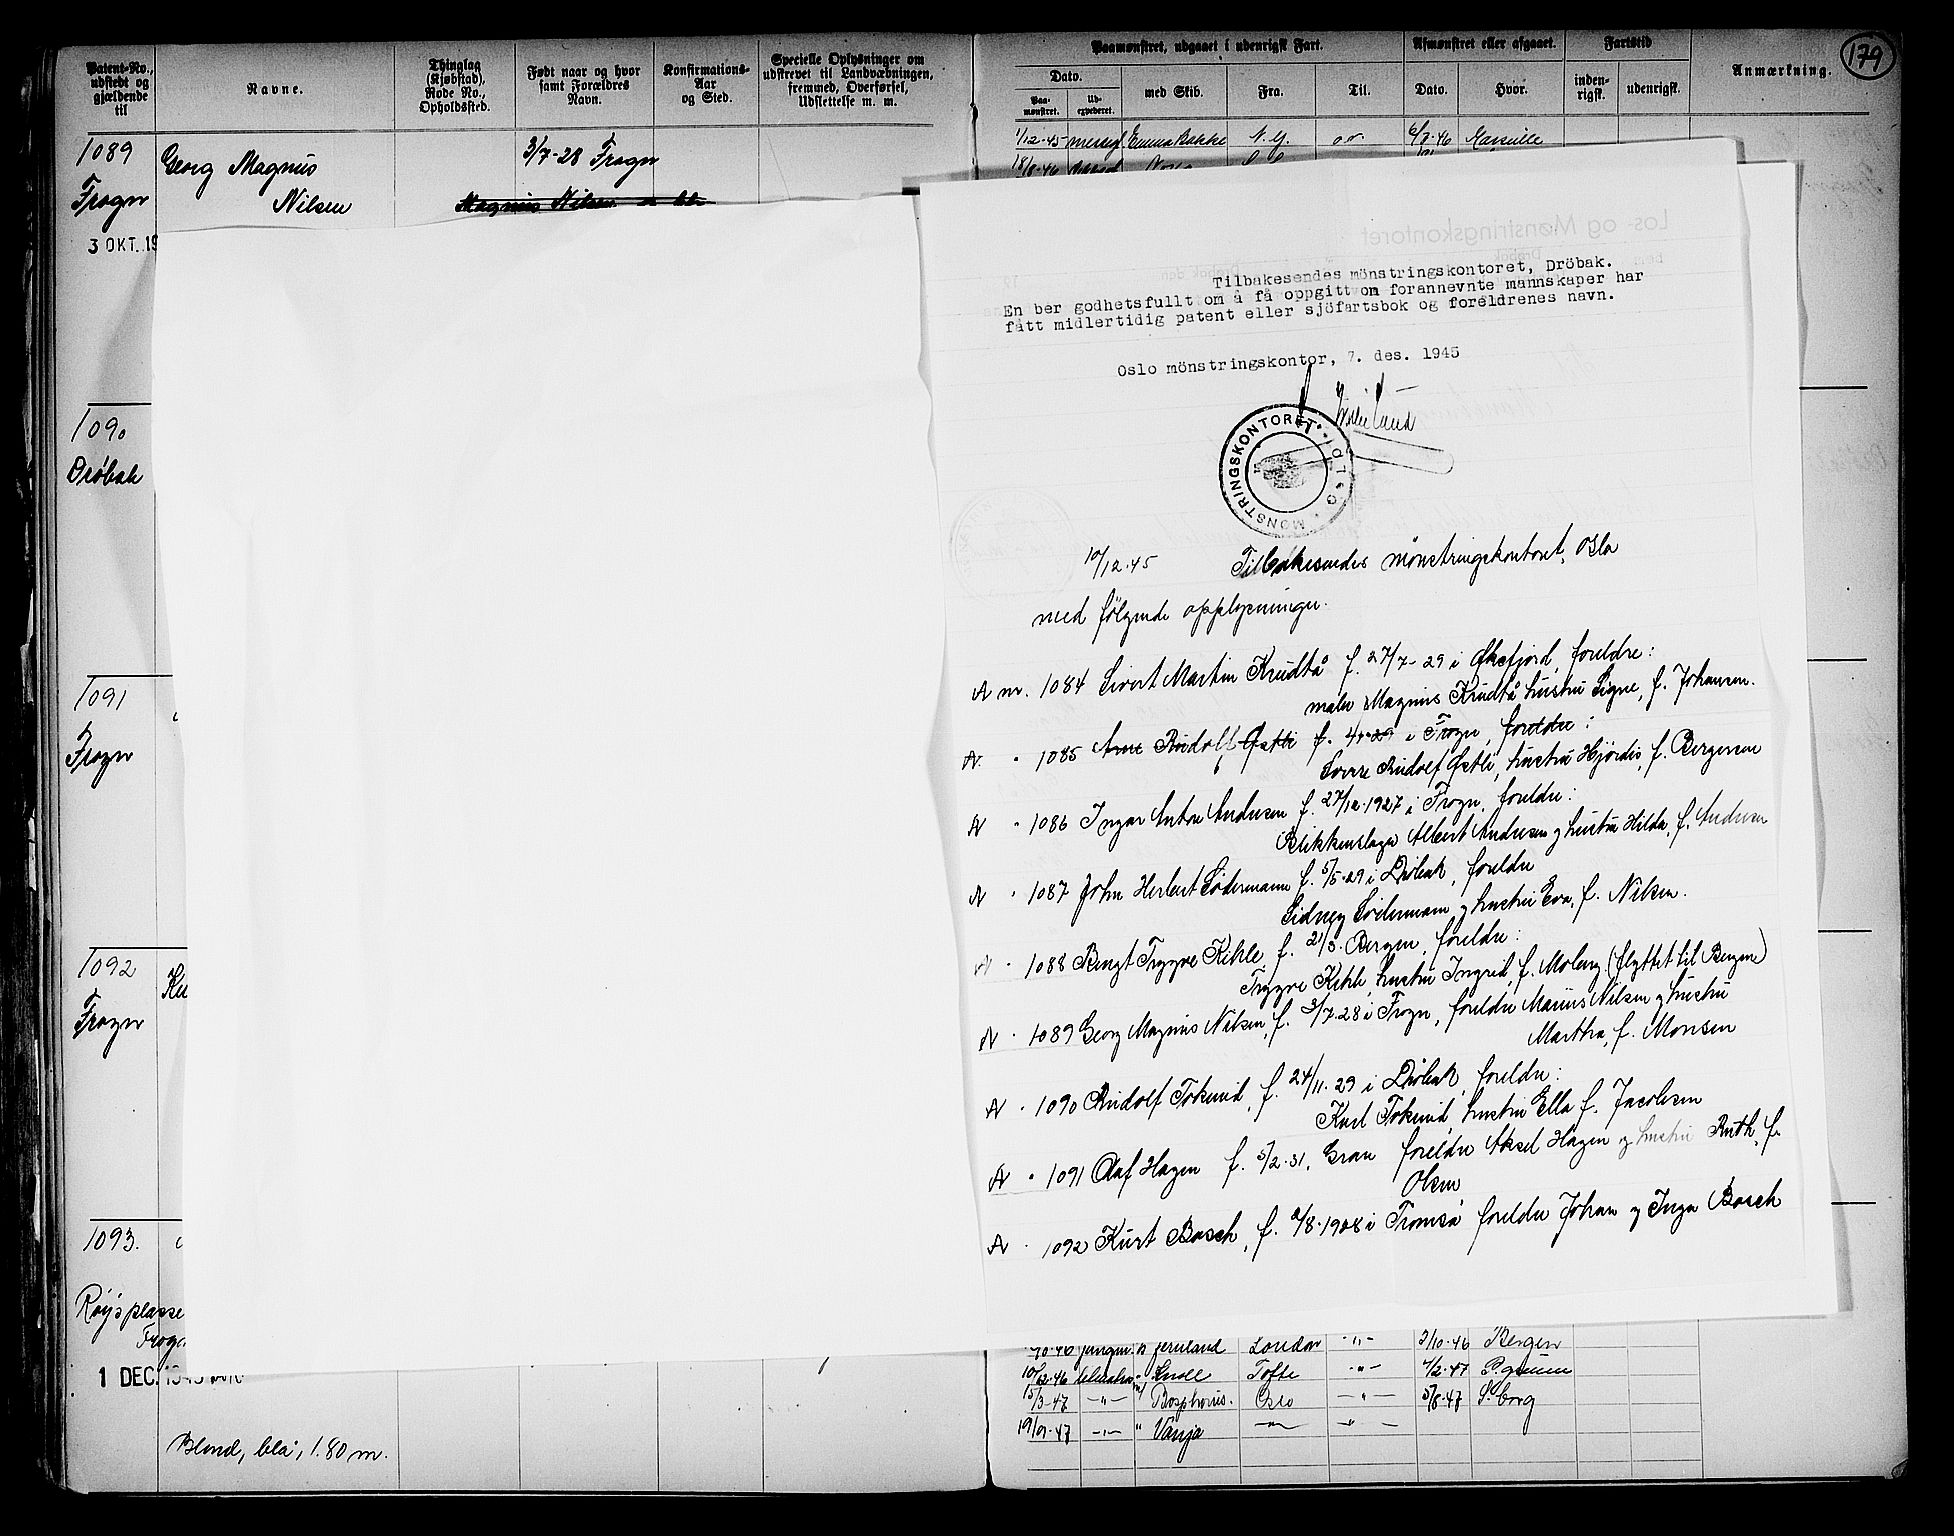 179
Patent-No., udstedt og gjældende til
Navne.
Thinglag (Kjøbstad), Rode No., Opholdssted.
Født naar og hvor samt Forældres Navn.
Konfirmations-Aar og Sted.
Specielle Oplysninger om udskrevet til Landværnningen, fremmed, Overførsel, Udslettelse m. m.
Paamønstret, udgaaet i udenrigsk Fart.
Dato.
Paa-mønstret.
Ud-expederet.
med Skib.
Fra.
Til.
Afmønstret eller afgaaet.
Dato.
Hvor.
Fartstid
inden-rigsk.
udenrigsk.
Anmærkning.
1089
Georg Magnus
3/7-28 Frogn
Frogn
Nilsen
Magnus Nilsen
3 OKT. 19
1/12-45 Emma Bakke N.Y. 6/8-46 Marseille
18/8-46
1090
Drøbak
1091
Frogn
1092
Ku
Frogn
1093.
Røysplasse
Frogn
1 DEC. 1945
Blond, blå, 1.80 m.
Los- og Mønstringskontoret
Tilbakesendes mönstringskontoret, Dröbak.
En ber godhetsfullt om å få oppgitt om forannevnte mannskaper har
fått midlertidig patent eller sjöfartsbok og foreldrenes navn.
Oslo mönstringskontor, 7. des. 1945
MØNSTRINGSKONTORET OSLO
10/12-45 Tilbakesendes mönstringskontoret, Oslo
med følgende opplysninger.
A nr. 1084 Sivert Martin Krudtå f. 27/7-29 i Øksfjord, foreldre:
maler Magnus Krudtå hustru Signe, f. Johansen.
A " 1085 Arne Rudolf Østli f. 4 29 i Frogn, foreldre:
Sverre Rudolf Østli, hustru Hjørdis, f. Bergersen
A " 1086 Ingar Anton Andersen f. 27/12-1927 i Frogn, foreldre:
Blikkenslager Albert Andersen og hustru Hilda, f. Andersen
A " 1087 John Herbert Södermann f. 5/5-29 i Drøbak, foreldre
Sidney Södermann og hustru Eva, f. Nilsen.
A " 1088 Bengt Trygve Kihle, f. 21/3. Bergen, foreldre:
Trygve Kihle, hustru Ingrid, f. Moberg (flyttet til Bergen)
A " 1089 Georg Magnus Nilsen, f. 3/7-28 i Frogn, foreldre Marius Nilsen og hustru
Martha, f. Monsen
A " 1090 Rudolf Toksrud, f. 24/11-29 i Drøbak, foreldre:
Karl Toksrud, hustru Ella f. Jacobsen
A " 1091 Olaf Hagen f. 5/2-31, Gran foreldre Aksel Hagen og hustru Ruth, f.
Olsen
A " 1092 Kurt Bosch, f. /8-1908 i Tromsø foreldre Johan og Inga Bosch
10-46 London -"- 2/10-46 Bergen
10/12-46 Tofte -"- 4/2-47
15/3-47 -"- Bosphorus. Oslo -"- 5/8-47 S.borg
19/9-47 -"- " Vanja -"- -"-